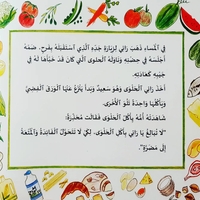 فِي الْمَسَاءِ ذَهَبَ رَانِي لِزِيَارَةِ جَدِّهِ الَّذِي اسْتَقْبَلَهُ بِفَرَحٍ، ضَمَّهُ
أَجْلَسَهُ فِي حِضْنِهِ وَنَاوَلَهُ الْحَلْوَى الَّتِي كَانَ قَدْ خَبَّأَهَا لَهُ فِي
جَيْبِهِ كَعَادَتِهِ.
أَخَذَ رَانِي الْحَلْوَى وَهُوَ سَعِيدٌ وَبَدَأَ يَنْزَعُ عَنْهَا الْوَرَقَ الْفِضِّيَّ
وَيَأْكُلُهَا وَاحِدَةً تِلْوَ الْأُخْرَى.
شَاهَدَتْهُ أُمُّهُ يَأْكُلُ الْحَلْوَى فَقَالَتْ مُحَذِّرَةً:
"لَا تُبَالِغْ يَا رَانِي بِأَكْلِ الْحَلْوَى، لِكَيْ لَا تَتَحَوَّلَ الْفَائِدَةُ وَالْمُتْعَةُ
إِلَى مَضَرَّةٍ".